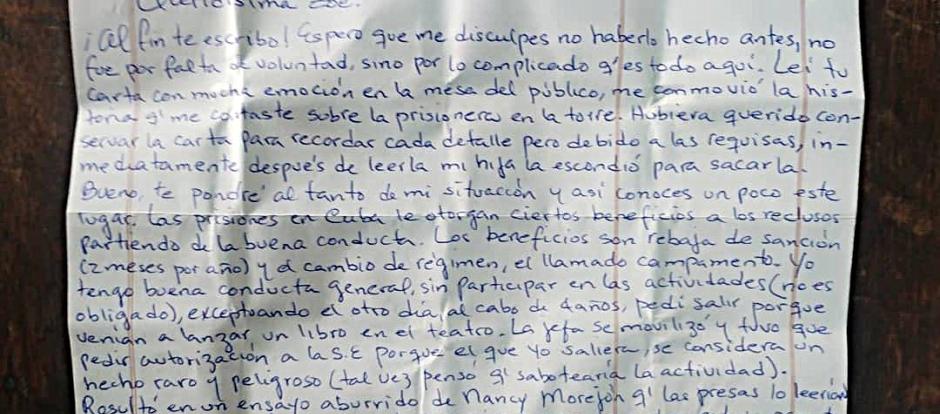 Queridísima Zoe:
¡Al fin te escribo! Espero que me disculpes no haberlo hecho antes, no
fue por falta de voluntad, sino por lo complicado q' es todo aquí. Leí tu
carta con mucha emoción en la mesa del público, me conmovió la his-
toria q' me contaste sobre la prisionera en la torre. Hubiera querido con-
servar la carta para recordar cada detalle pero debido a las requisas, in-
mediatamente después de leerla mi hija la escondió para sacarla.
Bueno, te pondré al tanto de mi situación y así conoces un poco este
lugar. Las prisiones en Cuba le otorgan ciertos beneficios a los reclusos
partiendo de la buena conducta. Los beneficios son rebaja de sanción
(2 meses por año) y el cambio de régimen, el llamado campamento. Yo
tengo buena conducta general, sin participar en las actividades (no es
obligado), exceptuando el otro día, al cabo de 4 años, pedí salir porque
venían a lanzar un libro en el teatro. La jefa se movilizó y tuvo que
pedir autorización a la S.E porque el que yo saliera, se considera un
hecho raro y peligroso (tal vez pensó q' sabotearía la actividad).
Resultó en un ensayo aburrido de Nancy Morejón q' las presas lo leerían